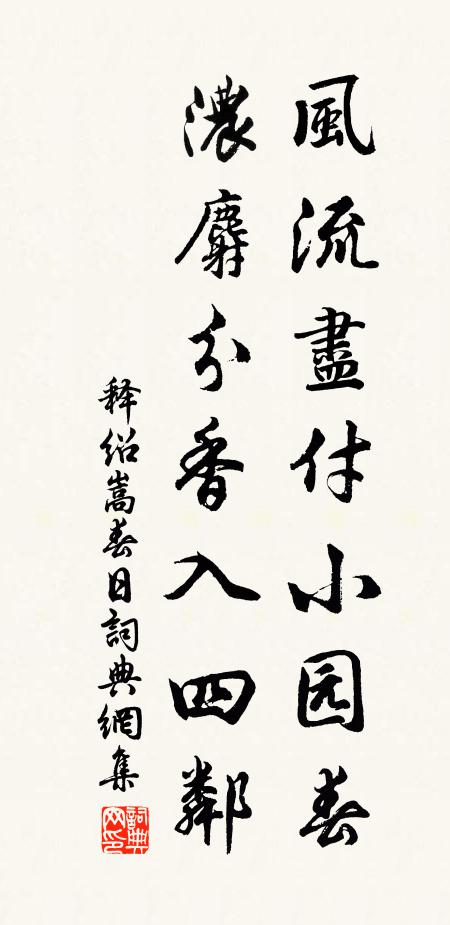 風流盡付小园春
濃麝分香入四鄰
释紹嵩春日詞典網集
詞典网印